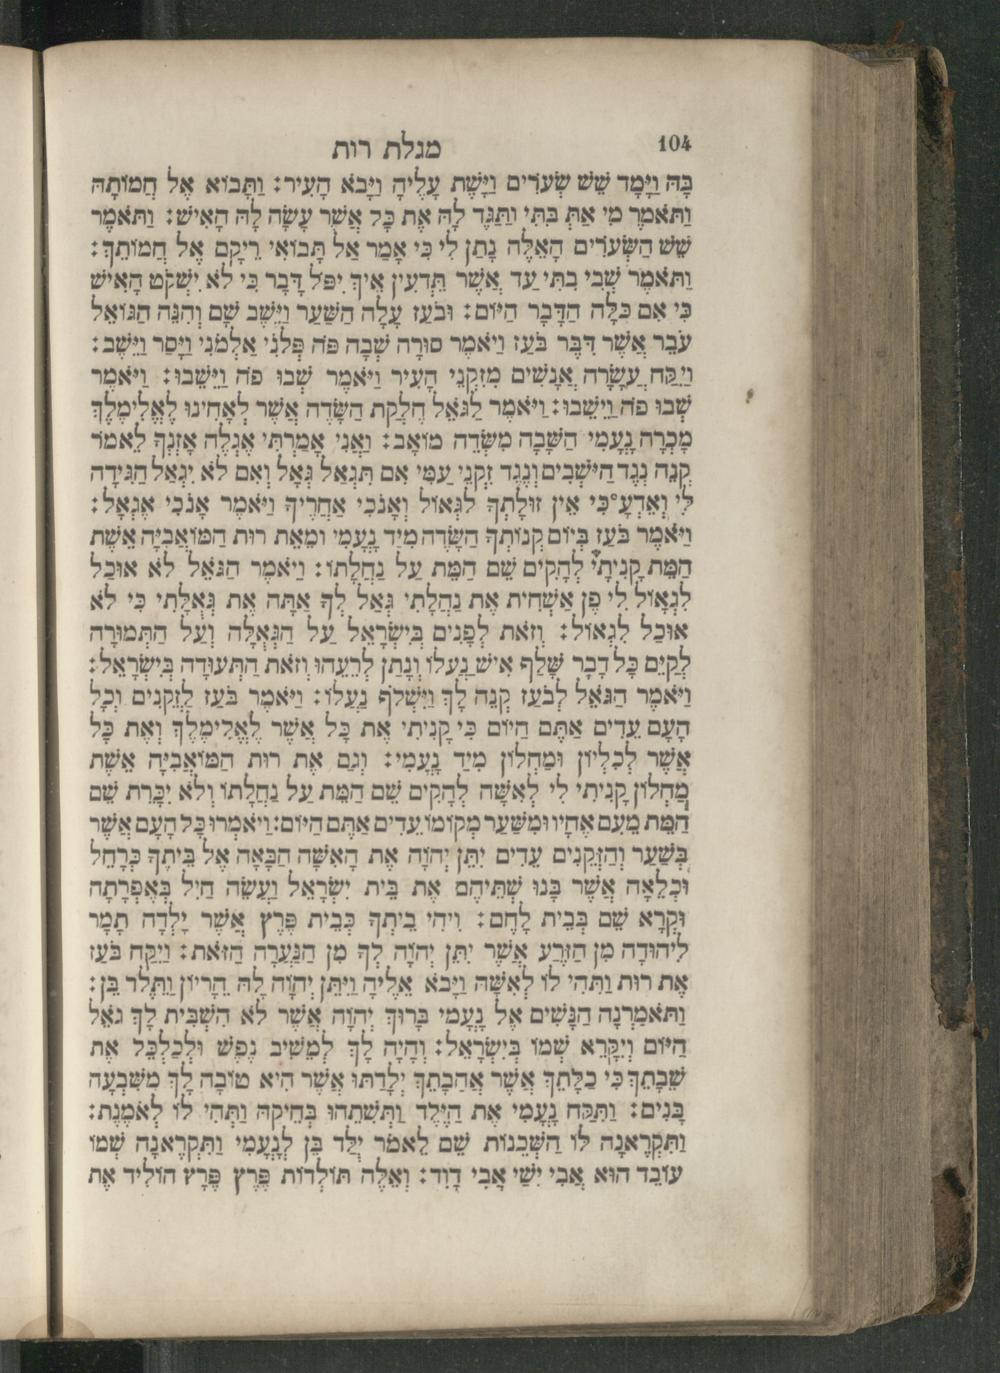 104
מגלת רות
בָּהּ וַיָּמָד שֵׁשׁ שְׂעֹרִים וַיָּשֶׁת עָלֶיהָ וַיָּבֹא הָעִיר׃ וַתָּבוֹא אֶל חֲמוֹתָהּ
וַתֹּאמֶר מִי אַתְּ בִּתִּי וַתַּגֶּד לָהּ אֵת כָּל אֲשֶׁר עָשָׂה לָהּ הָאִישׁ׃ וַתֹּאמֶר
שֵׁשׁ הַשְּׂעֹרִים הָאֵלֶּה נָתַן לִי כִּי אָמַר אַל תָּבוֹאִי רֵיקָם אֶל חֲמוֹתֵךְ׃
וַתֹּאמֶר שְׁבִי בִתִּי עַד אֲשֶׁר תֵּדְעִין אֵיךְ יִפֹּל דָּבָר כִּי לֹא יִשְׁקֹט הָאִישׁ
כִּי אִם כִּלָּה הַדָּבָר הַיּוֹם׃ וּבֹעַז עָלָה הַשַּׁעַר וַיֵּשֶׁב שָׁם וְהִנֵּה הַגּוֹאֵל
עֹבֵר אֲשֶׁר דִּבֶּר בֹּעַז וַיֹּאמֶר סוּרָה שְׁבָה פֹּה פְּלֹנִי אַלְמֹנִי וַיָּסַר וַיֵּשֵׁב׃
וַיִּקַּח עֲשָׂרָה אֲנָשִׁים מִזִּקְנֵי הָעִיר וַיֹּאמֶר שְׁבוּ פֹה וַיֵּשֵׁבוּ׃ וַיֹּאמֶר
שְׁבוּ פֹה וַיֵּשֵׁבוּ׃ וַיֹּאמֶר לַגֹּאֵל חֶלְקַת הַשָּׂדֶה אֲשֶׁר לְאָחִינוּ לֶאֱלִימֶלֶךְ
מָכְרָה נָעֳמִי הַשָּׁבָה מִשְּׂדֵה מוֹאָב׃ וַאֲנִי אָמַרְתִּי אֶגְלֶה אָזְנְךָ לֵאמֹר
קְנֵה נֶגֶד הַיֹּשְׁבִים וְנֶגֶד זִקְנֵי עַמִּי אִם תִּגְאַל גְּאָל וְאִם לֹא יִגְאַל הַגִּידָה
לִּי וְאֵדְעָ°כִּי אֵין זוּלָתְךָ לִגְאוֹל וְאָנֹכִי אַחֲרֶיךָ וַיֹּאמֶר אָנֹכִי אֶגְאָל׃
וַיֹּאמֶר בֹּעַז בְּיוֹם קְנוֹתְךָ הַשָּׂדֶה מִיַּד נָעֳמִי וּמֵאֵת רוּת הַמּוֹאֲבִיָּה אֵשֶׁת
הַמֵּת קָנִיתִי לְהָקִים שֵׁם הַמֵּת עַל נַחֲלָתוֹ׃ וַיֹּאמֶר הַגֹּאֵל לֹא אוּכַל
לִגְאָוֹל לִי פֶּן אַשְׁחִית אֶת נַחֲלָתִי גְּאַל לְךָ אַתָּה אֶת גְּאֻלָּתִי כִּי לֹא
אוּכַל לִגְאוֹל׃ וְזֹאת לְפָנִים בְּיִשְׂרָאֵל עַל הַגְּאֻלָּה וְעַל הַתְּמוּרָה
לְקַיֵּם כָּל דָּבָר שָׁלַף אִישׁ נַעֲלוֹ וְנָתַן לְרֵעֵהוּ וְזֹאת הַתְּעוּדָה בְּיִשְׂרָאֵל׃
וַיֹּאמֶר הַגֹּאֵל לְבֹעַז קְנֵה לָךְ וַיִּשְׁלֹף נַעֲלוֹ׃ וַיֹּאמֶר בֹּעַז לַזְּקֵנִים וְכָל
הָעָם עֵדִים אַתֶּם הַיּוֹם כִּי קָנִיתִי אֶת כָּל אֲשֶׁר לֶאֱלִימֶלֶךְ וְאֵת כָּל
אֲשֶׁר לְכִלְיוֹן וּמַחְלוֹן מִיַּד נָעֳמִי׃ וְגַם אֶת רוּת הַמּוֹאֲבִיָּה אֵשֶׁת
מַחְלוֹן קָנִיתִי לִי לְאִשָּׁה לְהָקִים שֵׁם הַמֵּת עַל נַחֲלָתוֹ וְלֹא יִכָּרֵת שֵׁם
הַמֵּת מֵעִם אֶחָיו וּמִשַּׁעַר מְקוֹמוֹ עֵדִים אַתֶּם הַיּוֹם׃ וַיֹּאמְרוּ כָּל הָעָם אֲשֶׁר
בַּשַּׁעַר וְהַזְּקֵנִים עֵדִים יִתֵּן יְהוָֹה אֶת הָאִשָּׁה הַבָּאָה אֶל בֵּיתֶךָ כְּרָחֵל
וּכְלֵאָה אֲשֶׁר בָּנוּ שְׁתֵּיהֶם אֶת בֵּית יִשְׂרָאֵל וַעֲשֵׂה חַיִל בְּאֶפְרָתָה
וּקְרָא שֵׁם בְּבֵית לָחֶם׃ וִיהִי בֵיתְךָ כְּבֵית פֶּרֶץ אֲשֶׁר יָלְדָה תָמָר
לִיהוּדָה מִן הַזֶּרַע אֲשֶׁר יִתֵּן יְהוָֹה לְךָ מִן הַנַּעֲרָה הַזֹּאת׃ וַיִּקַּח בֹּעַז
אֶת רוּת וַתְּהִי לוֹ לְאִשָּׁה וַיָּבֹא אֵלֶיהָ וַיִּתֵּן יְהוָֹה לָהּ הֵרָיוֹן וַתֵּלֶד בֵּן׃
וַתֹּאמַרְנָה הַנָּשִׁים אֶל נָעֳמִי בָּרוּךְ יְהוָֹה אֲשֶׁר לֹא הִשְׁבִּית לָךְ גֹּאֵל
הַיּוֹם וְיִקָּרֵא שְׁמוֹ בְּיִשְׂרָאֵל׃ וְהָיָה לָךְ לְמֵשִׁיב נֶפֶשׁ וּלְכַלְכֵּל אֶת
שֵׂיבָתֵךְ כִּי כַלָּתֵךְ אֲשֶׁר אֲהֵבָתֶךְ יְלָדַתּוּ אֲשֶׁר הִיא טוֹבָה לָךְ מִשִּׁבְעָה
בָּנִים׃ וַתִּקַּח נָעֳמִי אֶת הַיֶּלֶד וַתְּשִׁתֵהוּ בְחֵיקָהּ וַתְּהִי לוֹ לְאֹמֶנֶת׃
וַתִּקְרֶאנָה לּוֹ הַשְּׁכֵנוֹת שֵׁם לֵאמֹר יֻלַּד בֵּן לְנָעֳמִי וַתִּקְרֶאנָה שְׁמוֹ
עוֹבֵד הוּא אֲבִי יִשַׁי אֲבִי דָוִד׃ וְאֵלֶּה תּוֹלְדוֹת פֶּרֶץ פֶּרֶץ הוֹלִיד אֶת